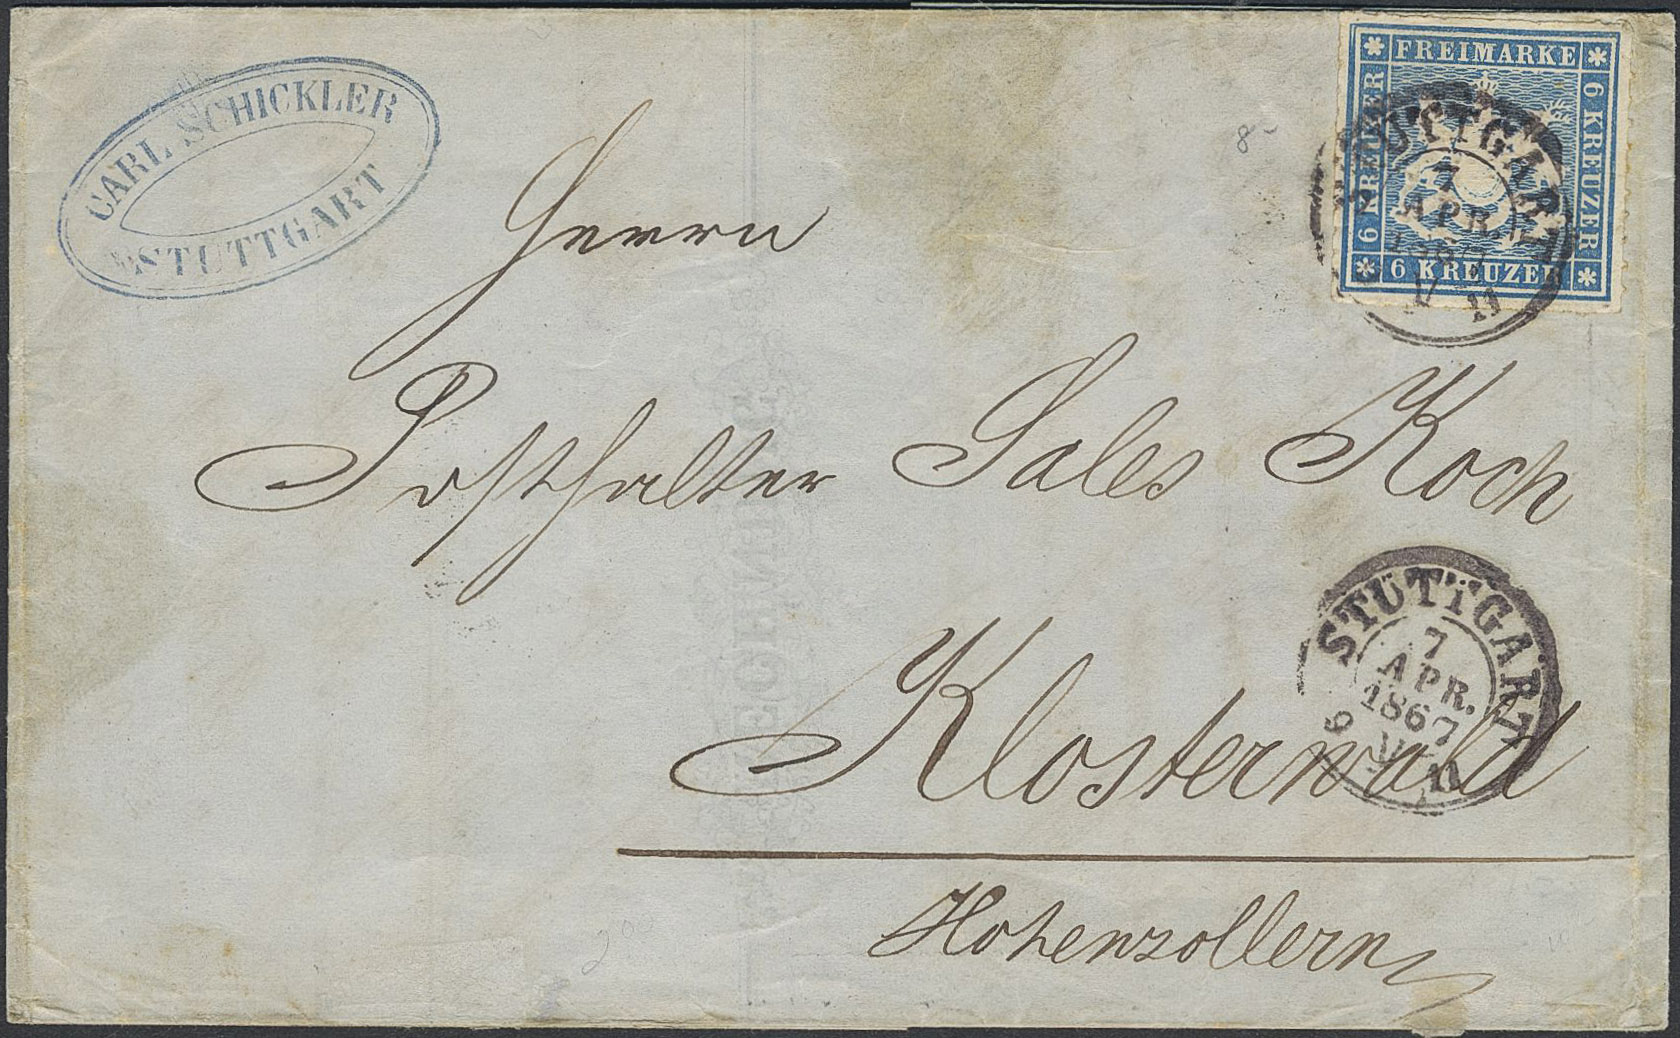 CARL SCHICKLER
STUTTGART
FREIMARKE
6 KREUZER
6 KREUZER
6 KREUZER
STUTTGART
7
APR.
V 11
8-
Herrn
Posthalter Sales Koch
Klosterwald
Hohenzollern
STUTTGART
7
APR.
1867
9 V 11